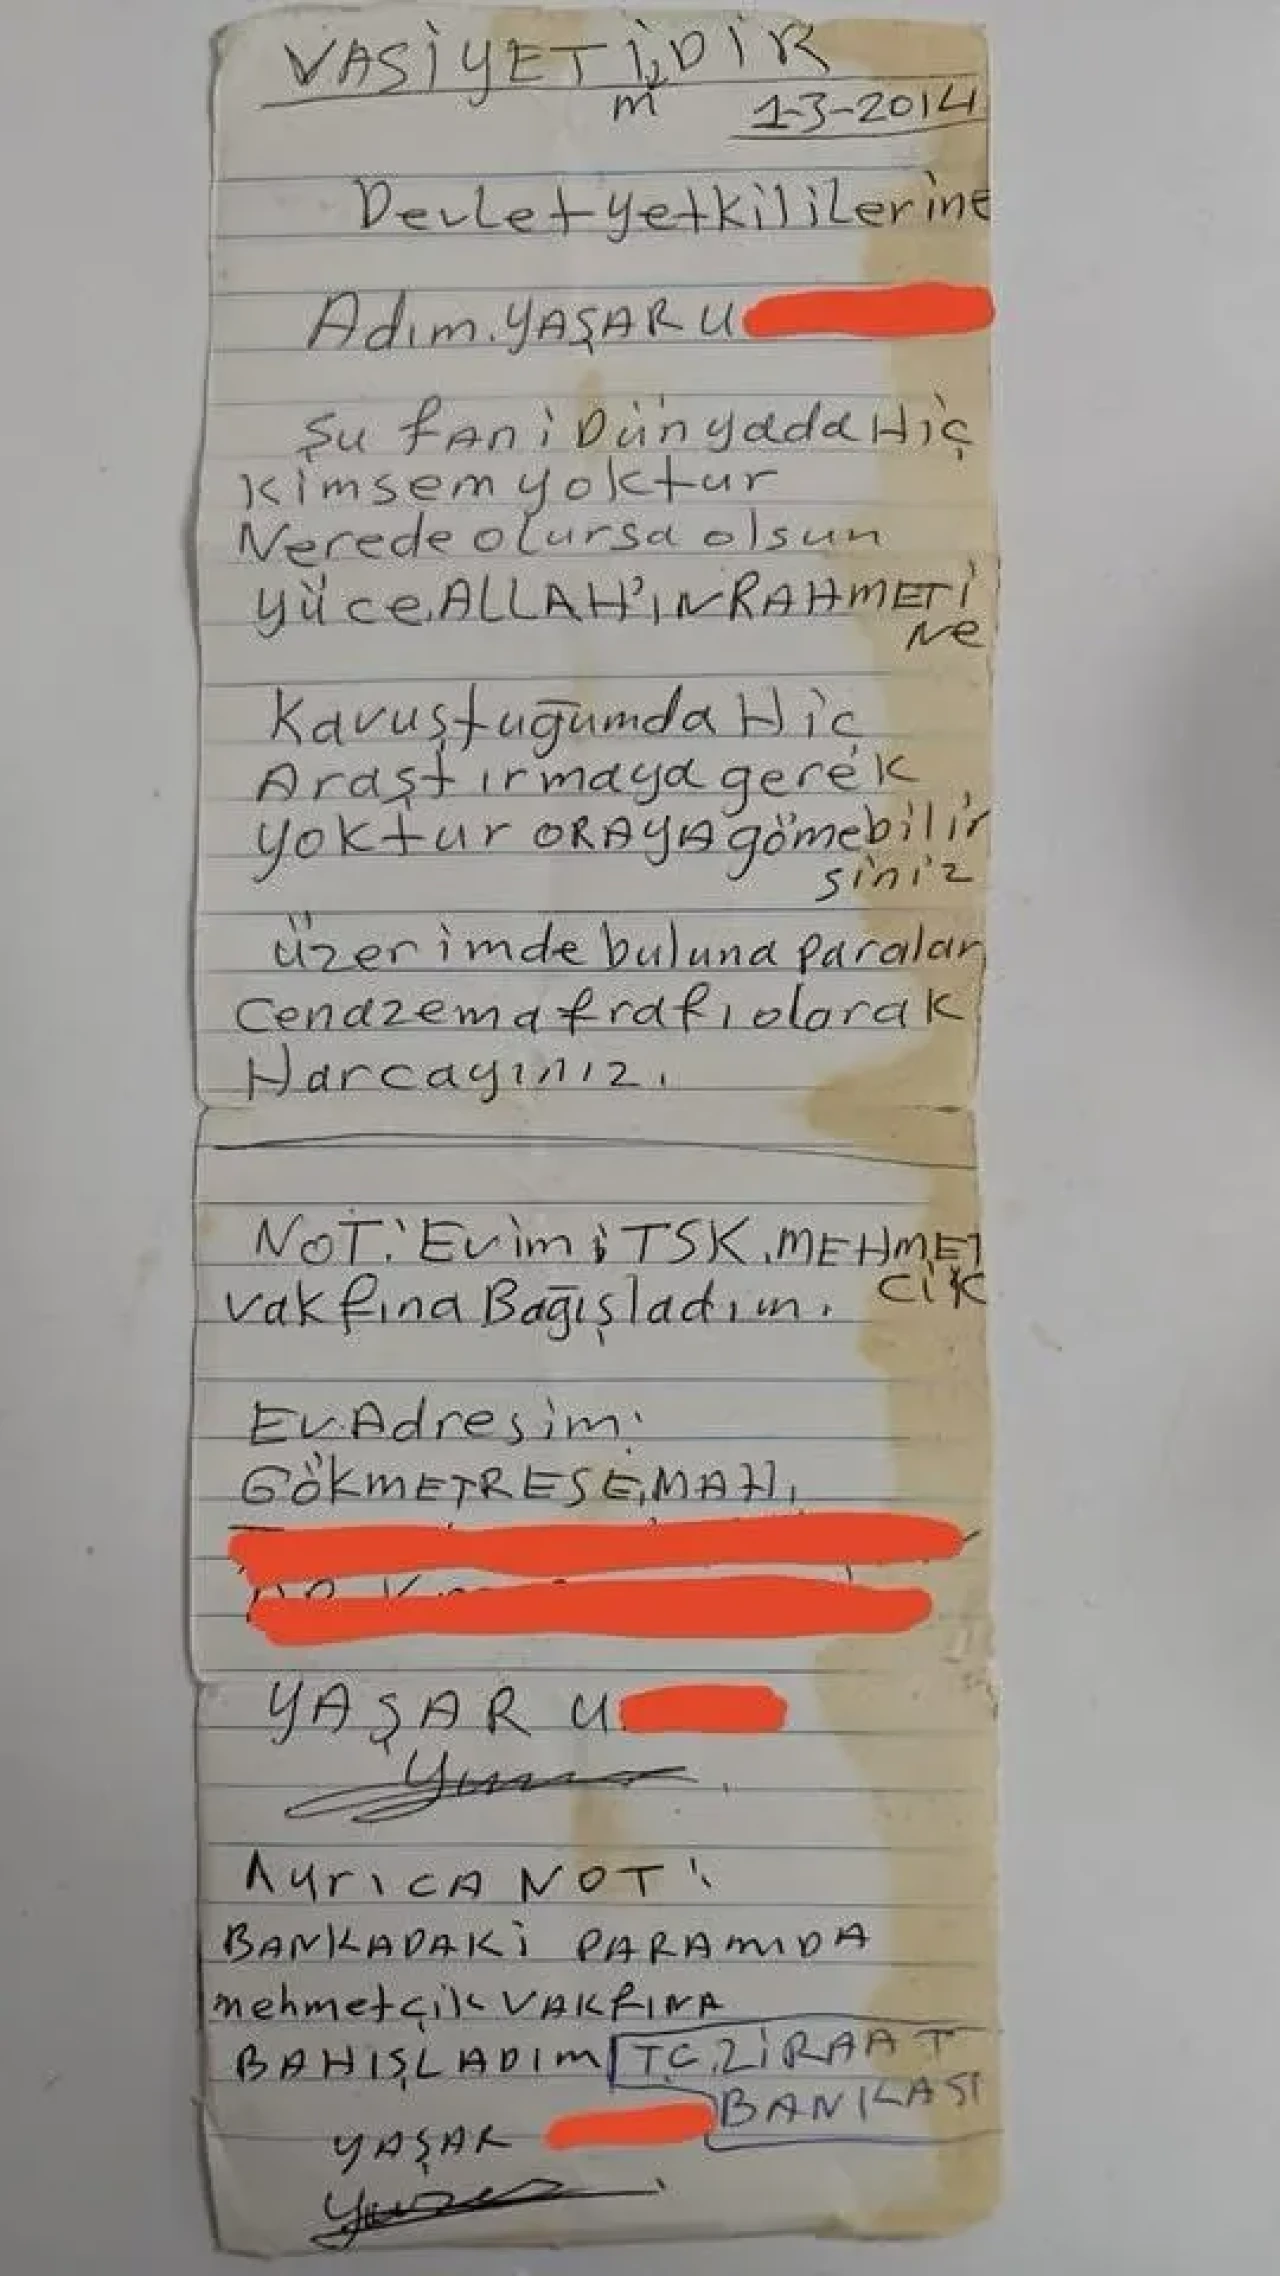 VASİYETİMDİR
1-3-2014
Devlet yetkililerine
Adım. YAŞAR U
Şu fani Dünyada Hiç
Kimsem yoktur
Nerede olursa olsun
yüce. ALLAH'IN RAHMETİ
Ne
Kavuştuğumda Hiç
Araştırmaya gerek
yoktur ORAYA gömebilir
siniz
üzerimde buluna paraları
Cenazema frafı olarak
Harcayınız.
NOT: Evimi TSK. MEHMET
CİK
vakfına Bağışladım.
Ev Adresim:
GÖKMETRESE, MAH.
YAŞAR U
Ayrıca NOT:
BANKADAKİ PARAMIDA
mehmetçik VAKFINA
BAHIŞLADIM T.C. ZİRAAT
BANKASI
YAŞAR